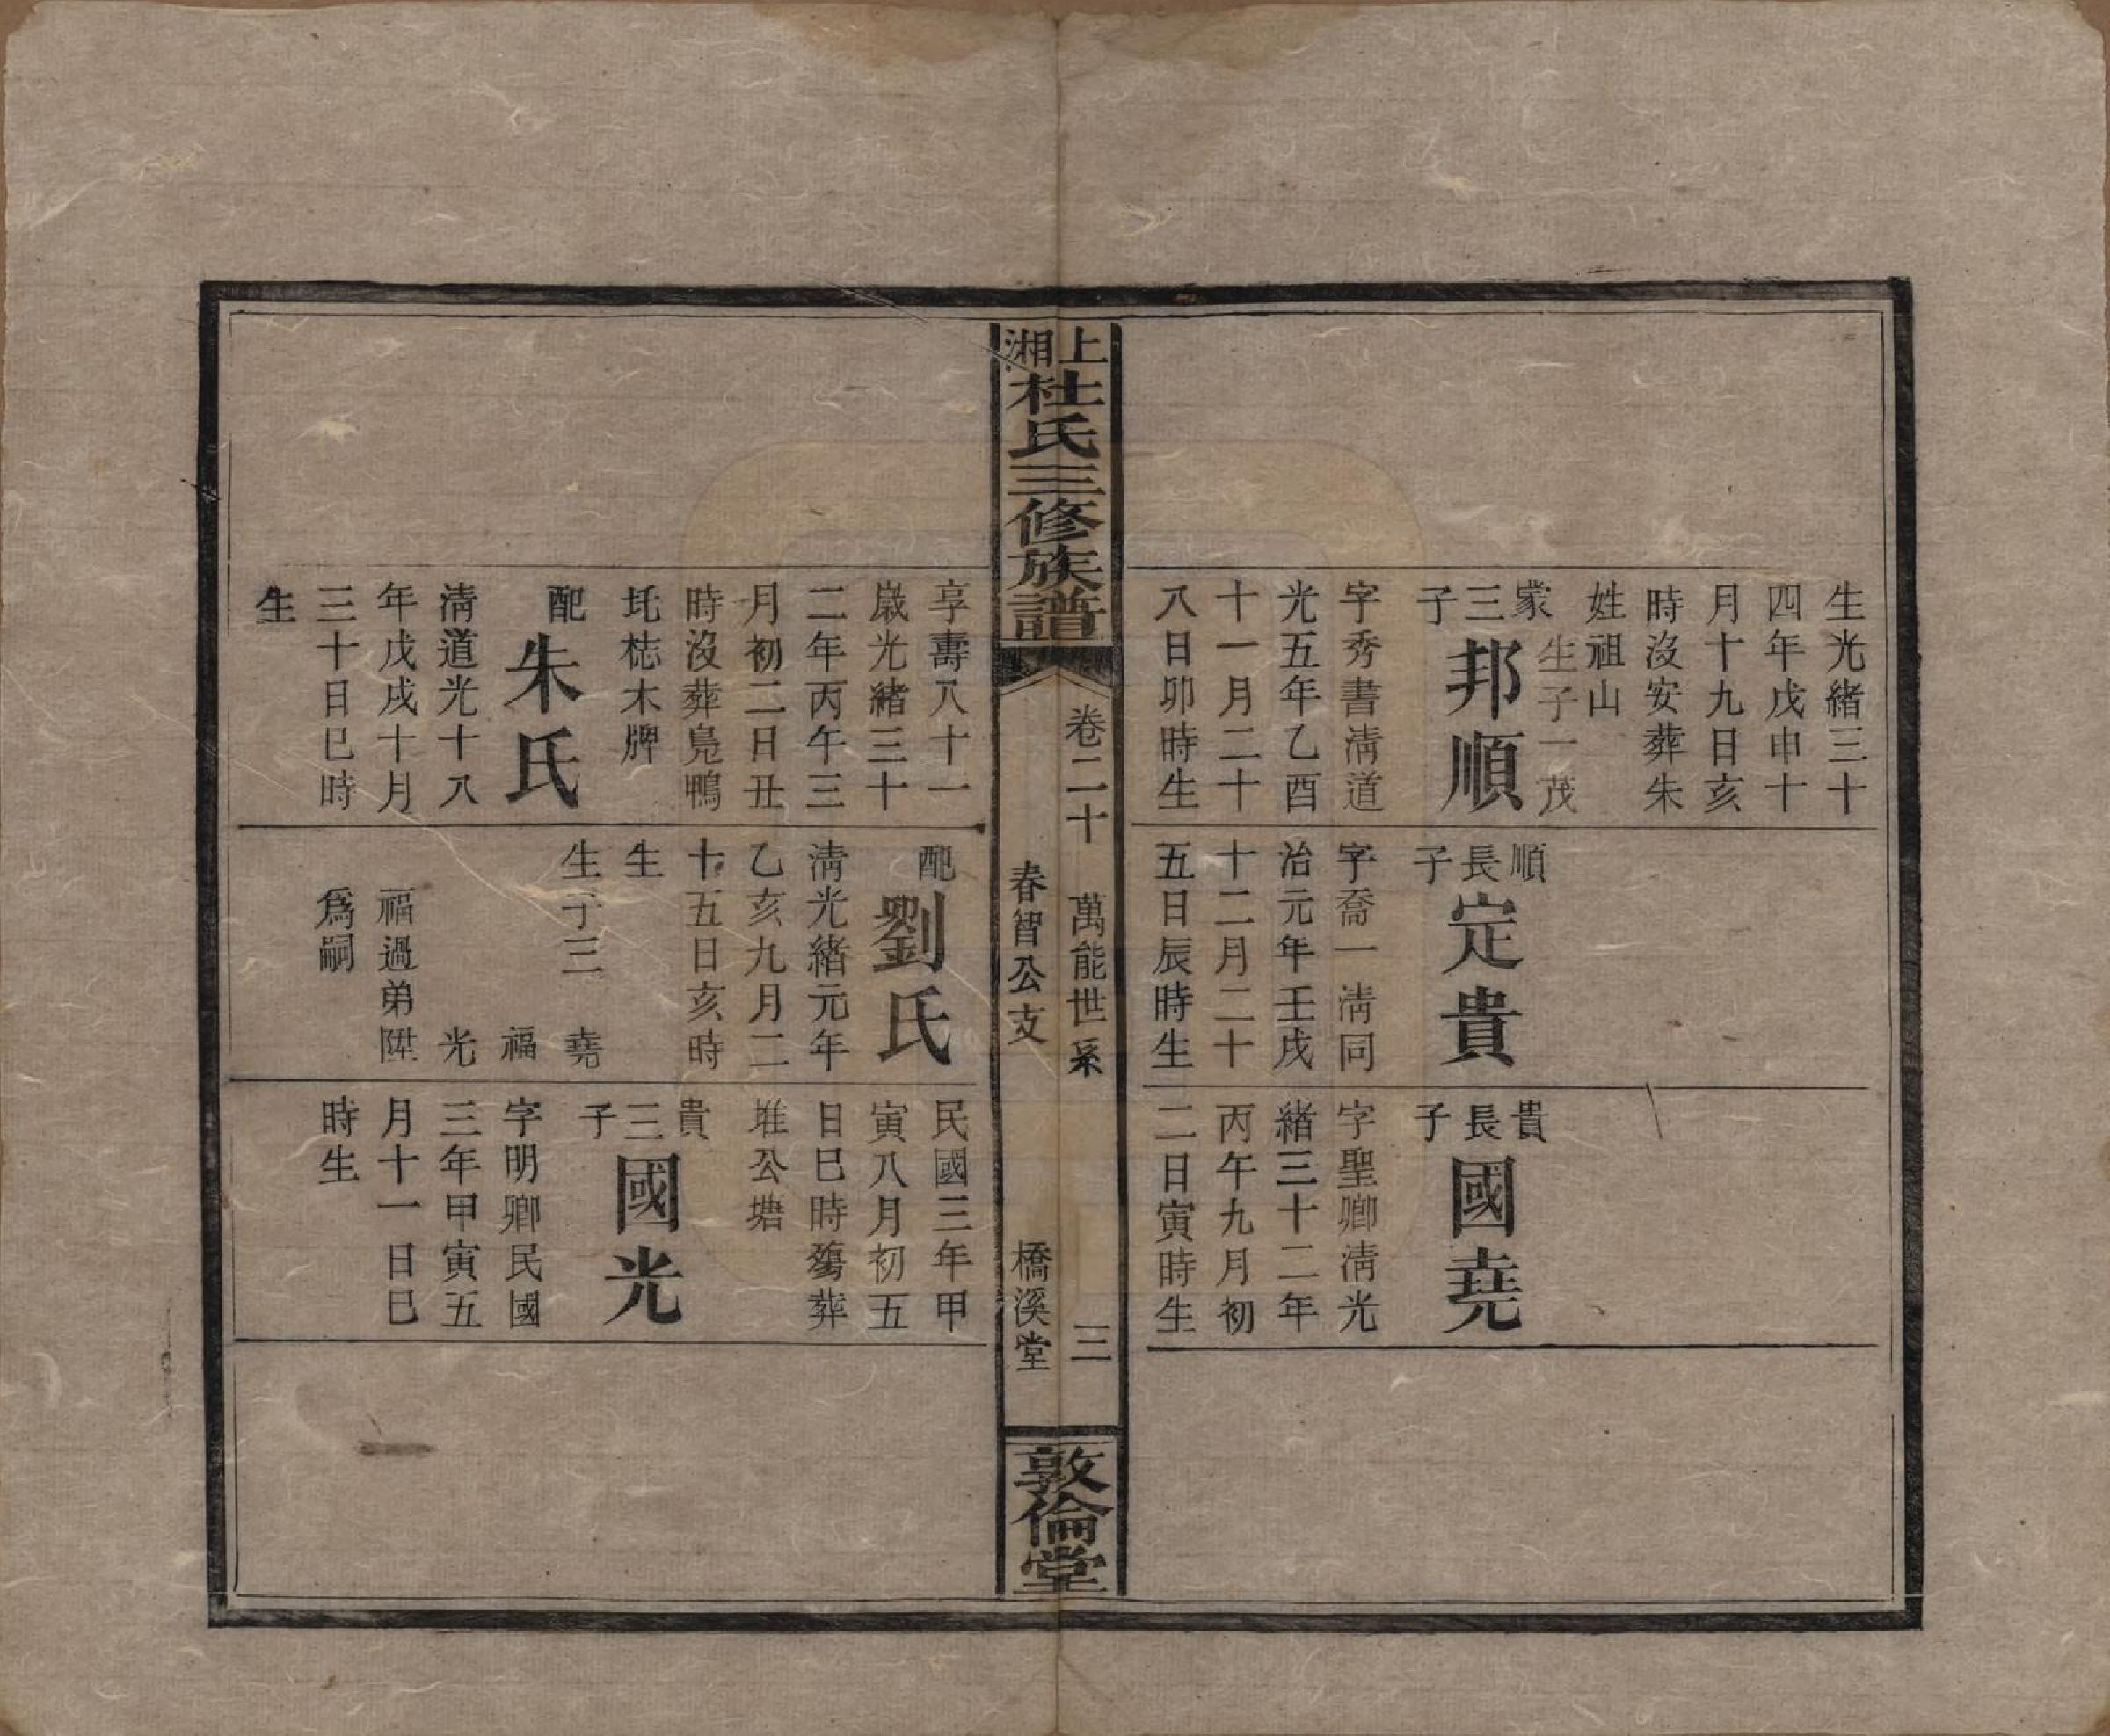 生光緒三十
四年戊申十
月十九日亥
時沒安葬朱
姓祖山
生子一茂
家三子
邦順
字秀書淸道
光五年乙酉
十一月二十
八日卯時生
順長子
定貴
字喬一淸同
治元年壬戌
十二月二十
五日辰時生
貴長子
國堯
字聖卿淸光
緒三十二年
丙午九月初
二日寅時生
上湘杜氏三修族譜
卷二十 萬能世系 三
春智公支 橋溪堂
敦倫堂
享壽八十一
歲光緒三十
二年丙午三
月初二日丑
時沒葬鳧鴨
坉梽木牌
配
朱氏
淸道光十八
年戊戌十月
三十日巳時
生
配
劉氏
淸光緒元年
乙亥九月二
十五日亥時
生
生子三 堯
福
光
福過弟陞
爲嗣
民國三年甲
寅八月初五
日巳時殤葬
堆公塘
貴三子
國光
字明卿民國
三年甲寅五
月十一日巳
時生